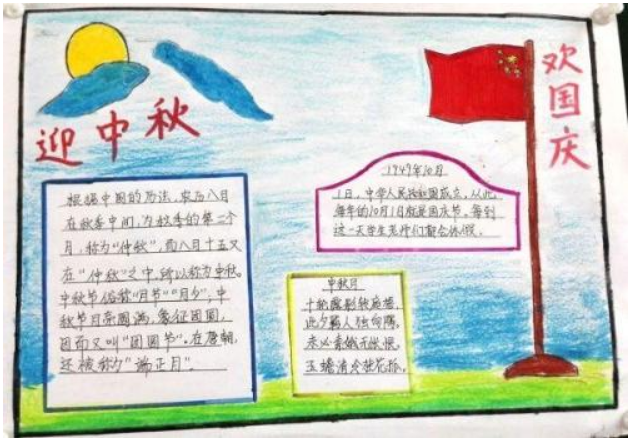 迎中秋
欢国庆
根据中国的历法,农历八月
在秋季中间,为秋季的第二个
月,称为“仲秋”,而八月十五又
在“仲秋”之中,所以称为中秋。
中秋节俗称“月节”“月夕”,中
秋节月亮圆满,象征团圆,
因而又叫“团圆节”。在唐朝,
还被称为“端正月”。
1949年10月
1日,中华人民共和国成立,从此,
每年的10月1日就是国庆节。每到
这一天学生老师们都会休假。
中秋月
十轮霜影转庭梧,
此夕羁人独向隅。
未必素娥无怅恨,
玉蟾清冷桂花孤。